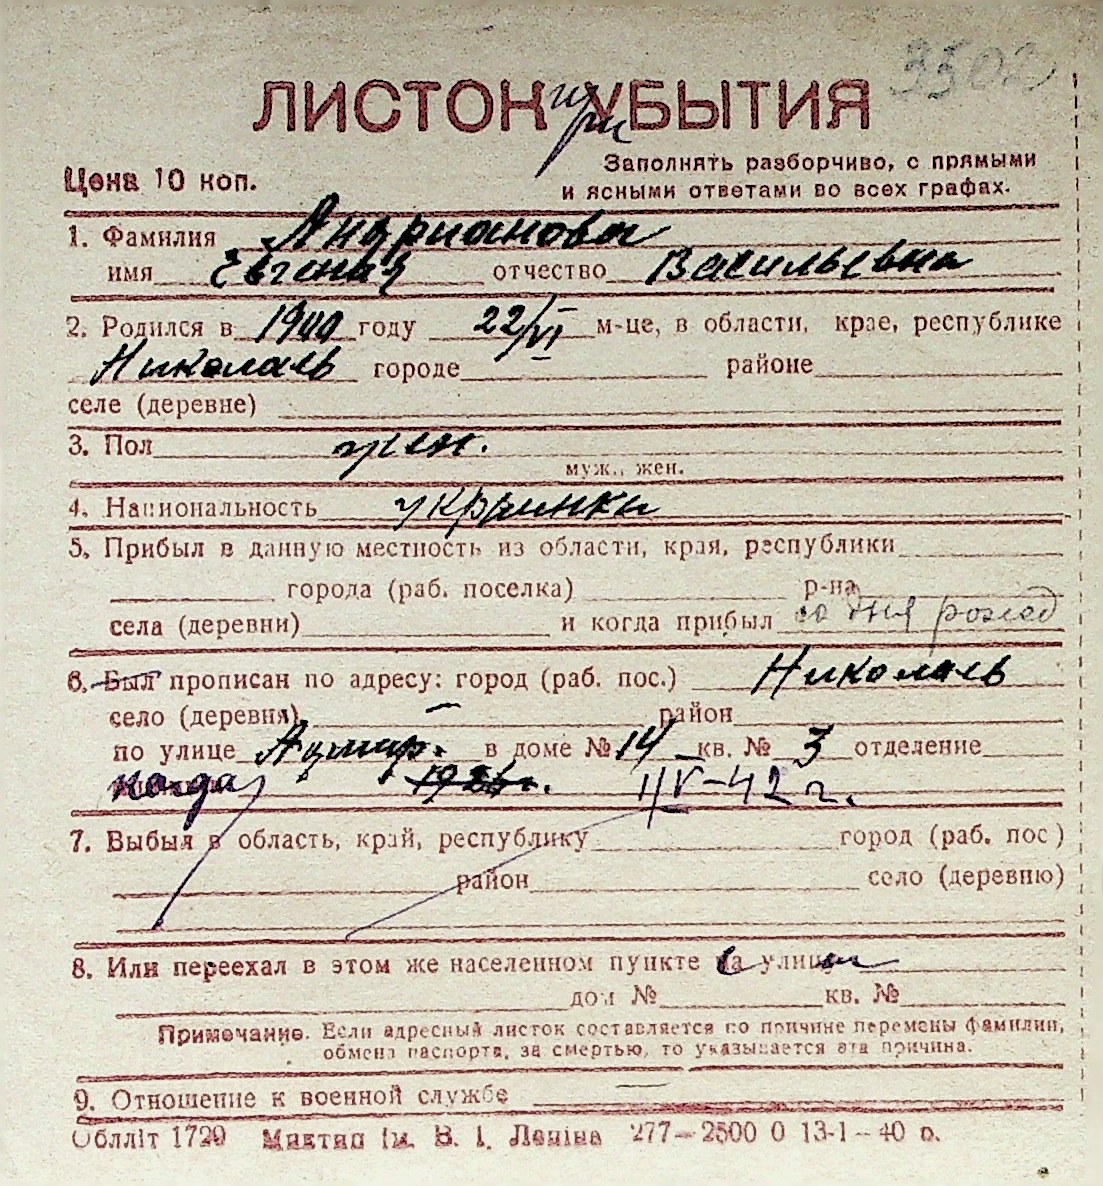 3502
ЛИСТОК при УБЫТИЯ
Цена 10 коп.
Заполнять разборчиво, с прямыми
и ясными ответами во всех графах.
1. Фамилия Андрианова
имя Евгения отчество Васильевна
2. Родился в 1900 году 22/VI м-це, в области, крае, республике
Николаев городе районе
селе (деревне)
3. Пол жен.
муж., жен.
4. Национальность украинка
5. Прибыл в данную местность из области, края, республики
города (раб. поселка) р-на
села (деревни) и когда прибыл со дня рожд
6. Был прописан по адресу: город (раб. пос.) Николаев
село (деревня) — район
по улице Адмир. в доме № 14 кв. № 3 отделение
когда 1926г. IV-42 г.
7. Выбыл в область, край, республику город (раб. пос)
район село (деревню)
8. Или переехал в этом же населенном пункте на улицу
дом № кв. №
Примечание. Если адресный листок составляется по причине перемены фамилии,
обмена паспорта, за смертью, то указывается эта причина.
9. Отношение к военной службе —
Обллiт 1720 Миктип iм. В. I. Ленiна 277—2500 0 13-1—40 р.